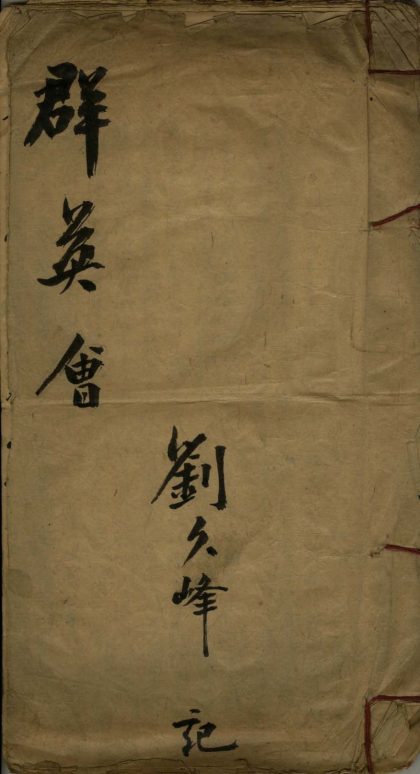 群英會
劉久峰 記